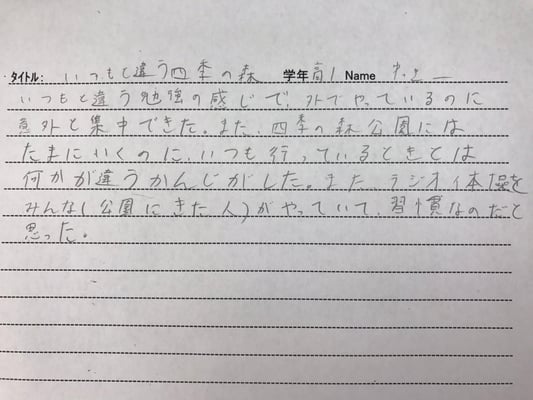 タイトル: いつもと違う四季の森 学年 高1 Name
いつもと違う勉強の感じで、外でやっているのに
意外と集中できた。また、四季の森公園には
たまにいくのに、いつも行っているときとは
何かが違うかんじがした。また、ラジオイ本操を
みんな(公園にきた人)がやっていて、習慣なのだと
思った。